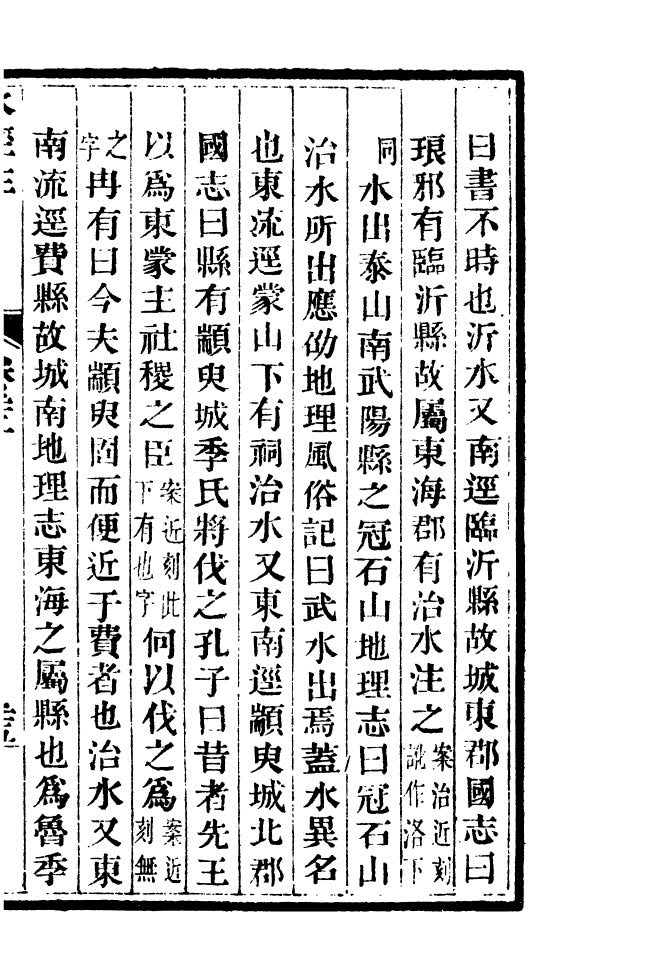 曰書不時也沂水又南逕臨沂縣故城東郡國志曰
琅邪有臨沂縣故屬東海郡有治水注之案治近刻訛作洛下
同水出泰山南武陽縣之冠石山地理志曰冠石山
治水所出應劭地理風俗記曰武水出焉蓋水異名
也東流逕蒙山下有祠治水又東南逕顓臾城北郡
國志曰縣有顓臾城季氏將伐之孔子曰昔者先王
以爲東蒙主社稷之臣案近刻此下有也字何以伐之爲案近刻無
之字冉有曰今夫顓臾固而便近于費者也治水又東
南流逕費縣故城南地理志東海之屬縣也爲魯季
水經注